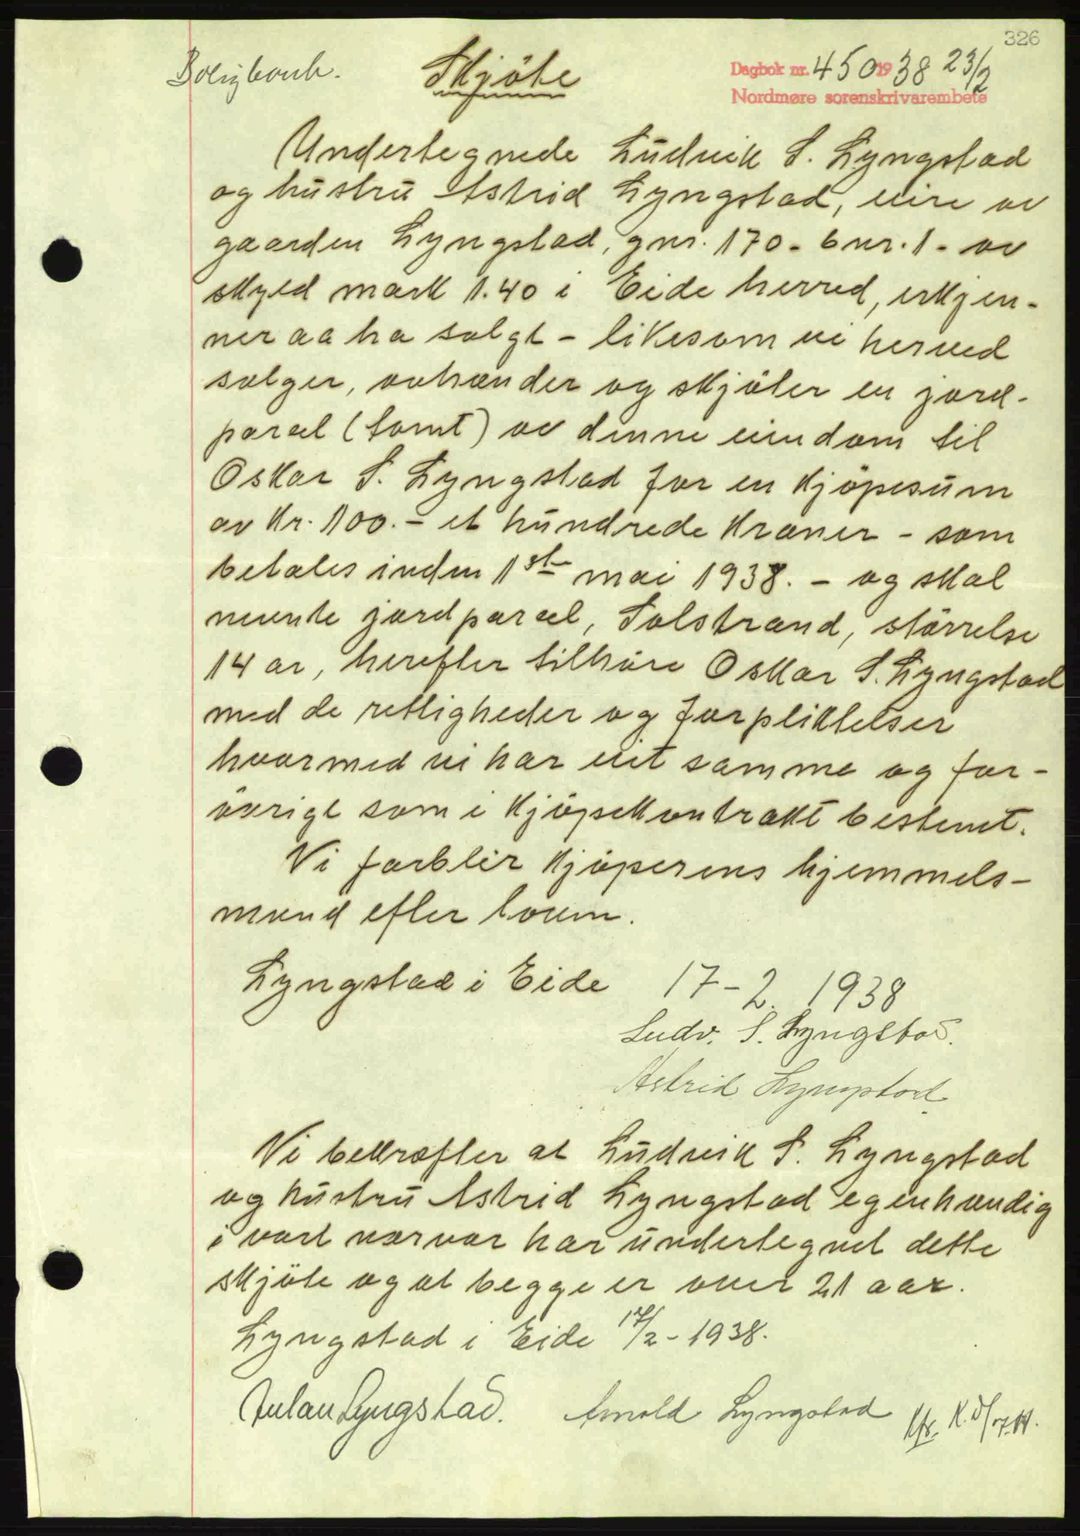 326
Skjöte
Dagbok nr. 450 1938 23/2
Nordmøre sorenskrivarembete
Undertegnede Ludvik S. Lyngstad
og hustru Astrid Lyngstad, eire av
gaarden Lyngstad, gnr. 170 - bnr. 1 - av
skyld mark 1.40 i Eide herred, erkjen-
ner aa ha solgt - likesom vi herved
sælger, avhænder og skjöter en jord-
parcel (tomt) av denne eiendom til
Oskar S. Lyngstad for en kjöpesum
av kr. 100.- et hundrede kroner - som
betales inden 1ste mai 1938. - og skal
nevnte jordparcel, Solstrand, störrelse
14 ar, herefter tilhöre Oskar S. Lyngstad
med de rettigheder og forpliktelser
hvormed vi har eiet samme og for-
övrigt som i kjöpekontrakt bestemt.
Vi forblir kjöperens hjemmels-
mænd efter loven.
Lyngstad i Eide 17-2. 1938
Ludv. S. Lyngstad.
Astrid Lyngstad
Vi bekræfter at Ludvik S. Lyngstad
og hustru Astrid Lyngstad egenhændig
i vort nærvær har undertegnet dette
skjöte og at begge er over 21 aar.
Lyngstad i Eide 17/2 - 1938.
Lyngstad. Arnold Lyngstad